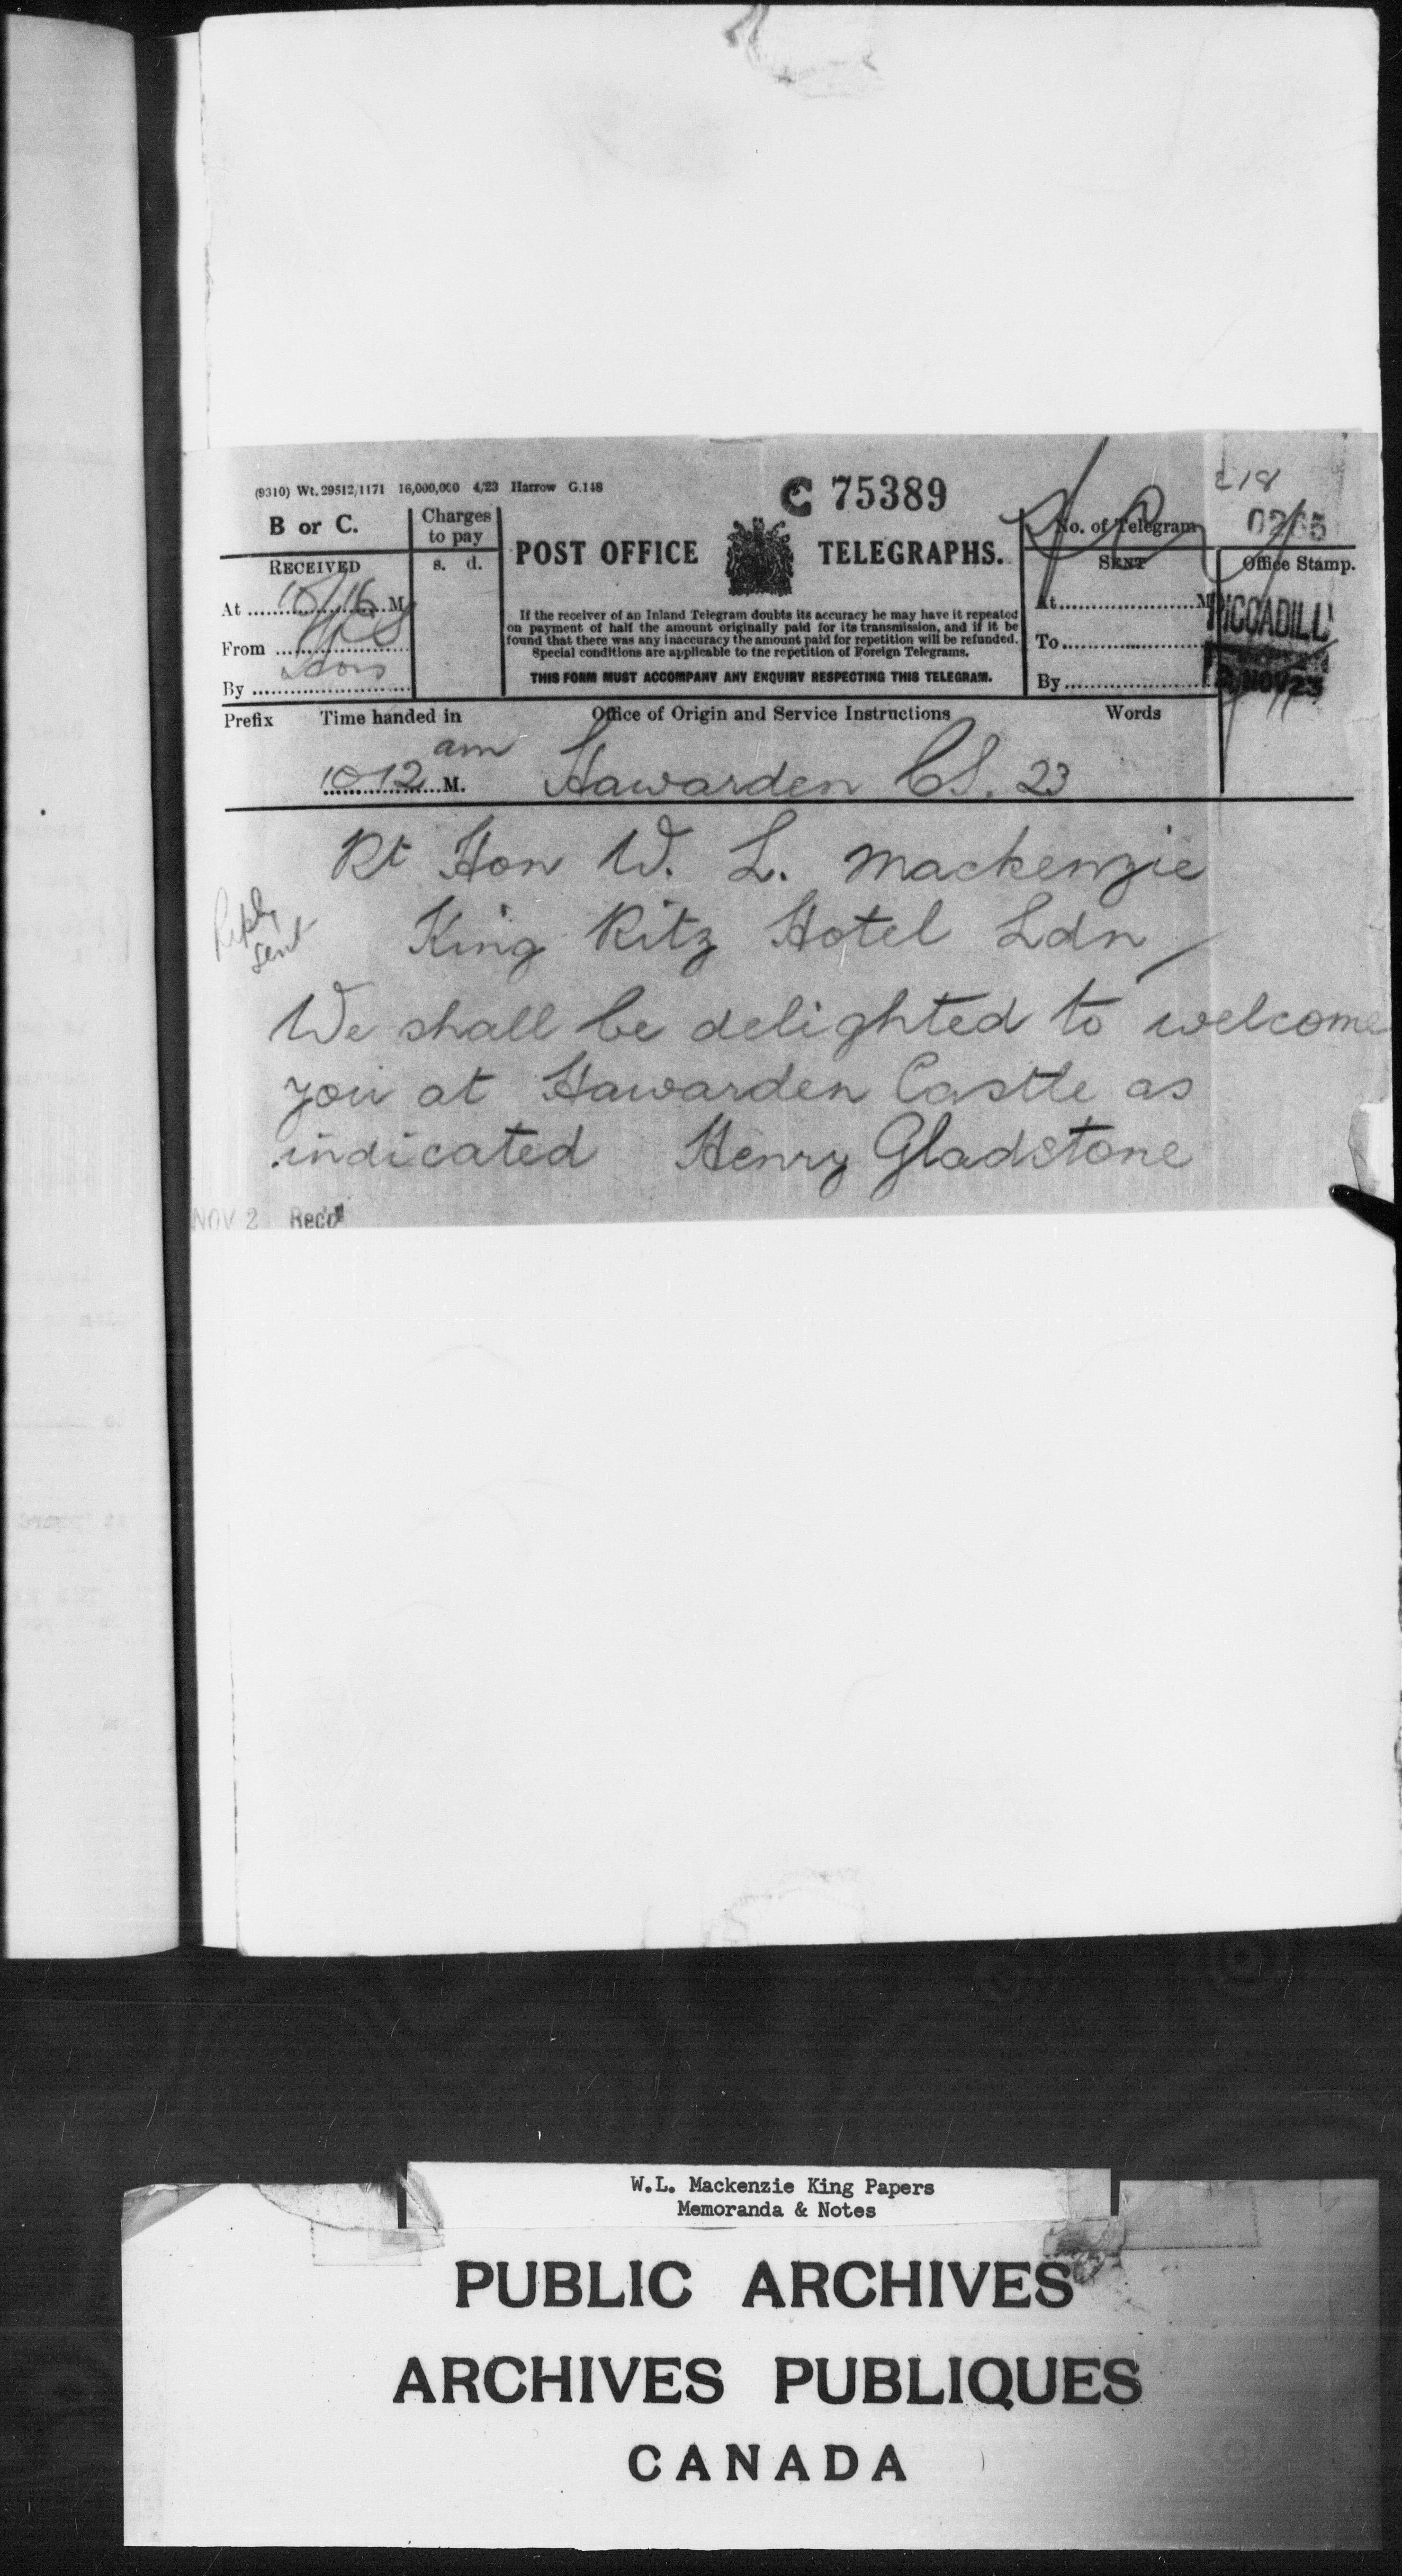 (9310) Wt. 29512/1171 16,000,000 4/23 Harrow G.148
C 75389
218
B or C.
Charges to pay
s. d.
POST OFFICE TELEGRAPHS.
No. of Telegram
RECEIVED
SENT
Office Stamp.
At M
From
By
If the receiver of an Inland Telegram doubts its accuracy he may have it repeated
on payment of half the amount originally paid for its transmission, and if it be
found that there was any inaccuracy the amount paid for repetition will be refunded.
Special conditions are applicable to the repetition of Foreign Telegrams.
THIS FORM MUST ACCOMPANY ANY ENQUIRY RESPECTING THIS TELEGRAM.
At M
To
By
PICCADILL
NOV 23
Prefix Time handed in Office of Origin and Service Instructions Words
10 12 am M. Hawarden CS. 23
Rt Hon W. L. Mackenzie
King Ritz Hotel Ldn
Reply
sent
We shall be delighted to welcome
you at Hawarden Castle as
indicated Henry Gladstone
NOV 2 Rec'd
W.L. Mackenzie King Papers
Memoranda & Notes
PUBLIC ARCHIVES
ARCHIVES PUBLIQUES
CANADA